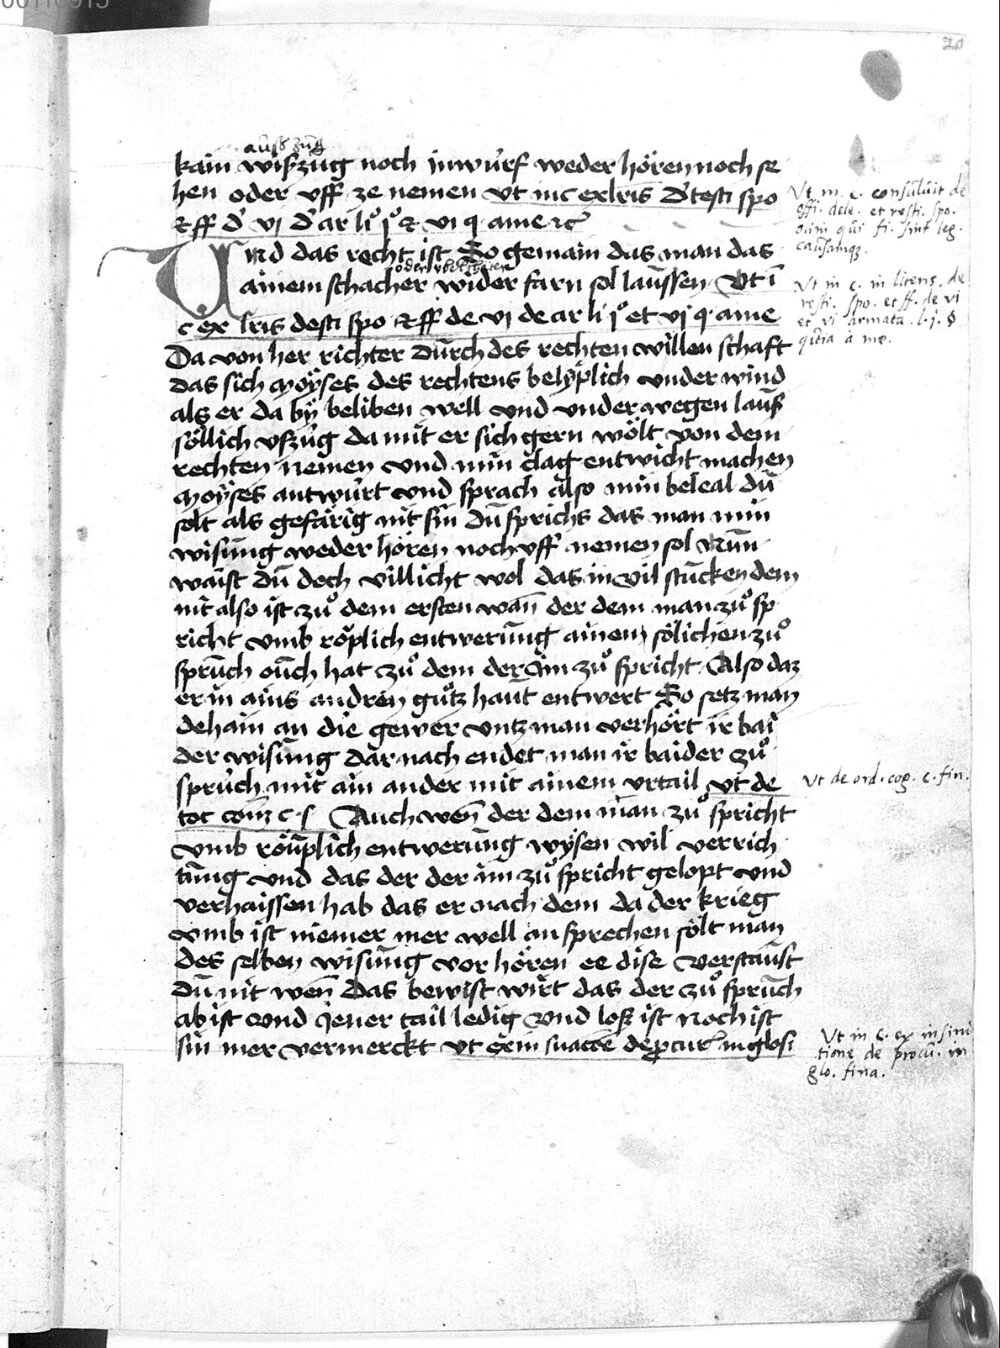 20
außzug
kain wißzug noch inwürf weder hören noch se
hen oder vff ze nemen vt in c ex lris d' testi spo
& ff d' vj d' ar li j & vi q ame &c
Vt in c. consuluit de
offi. dele. et resti. spo.
olim qui fi. sint leg.
causamqz.
Und das recht ist So gemain das man das
oder vbeltheter
ainem schacher wider farn sol laussen Vt i
c ex lris desti spo & ff de vj de ar li j et vj q ame
Vt in c. in literis. de
resti. spo. et ff. de vi
et vi armata. l. j. §
quia a me.
Da von her richter durch des rechten willen schaft
das sich moyses des rechtens belyplich vnder wind
als er da by beliben well vnd vnder wegen lauß
söllich vßzüg da mit er sich gern wölt von dem
rechten nemen vnd min clag entwicht machen
moyses antwürt vnd sprach also min beleal du
solt als gefärig nit sin du sprichs das man min
wisung weder hören noch vff nemen sol Nun
waist du doch villicht wol das in vil stucken dem
nit also ist zu dem ersten wan der dem man zu sp
richt vmb röplich entwerung ainem sölichen zu
spruch ouch hat zu dem der im zu spricht Also daz
er in ains andren gutz haut entwert So setz man
dehain an die gewer vntz man verhört ir bai
der wisung dar nach endet man ir baider zu
spruch mit ain ander mit ainem vrtail vt de
Vt de ord. cog. c. fin.
toc com c f Auch wen der dem man zu spricht
vmb röuplich entwerung wysen wil verrich
tung vnd das der der im zu spricht gelopt vnd
verhaissen hab das er nach dem da der krieg
vmb ist niemer mer well an sprechen sölt man
des selben wisung vor hören ee dise verstaust
du nit wen Das bewist wirt das der zu spruch
ab ist vnd jener tail ledig vnd loß ist Noch ist
sin mer vermerckt vt exin suacoe de pcur in glosi
Vt in c. ex insinu
tione de procu. in
glo. fina.